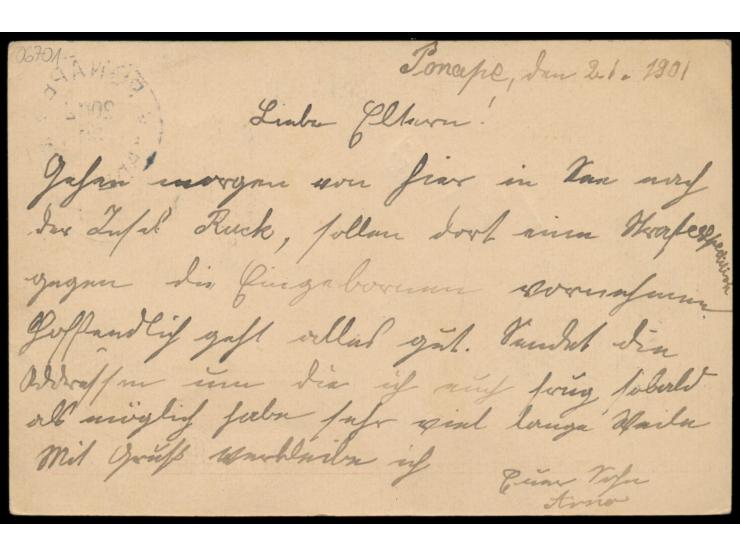 06701
Ponape, den 2.1. 1901
Liebe Eltern!
Gehen morgen von hier in See nach
der Insel Ruck, sollen dort eine Strafexpedition
gegen die Eingebornen vornehmen
Hoffendlich geht alles gut. Sendet die
Addressen um die ich euch frug, sobald
als möglich habe sehr viel lange Weile
Mit Gruß verbleibe ich
Euer Sohn
Arno